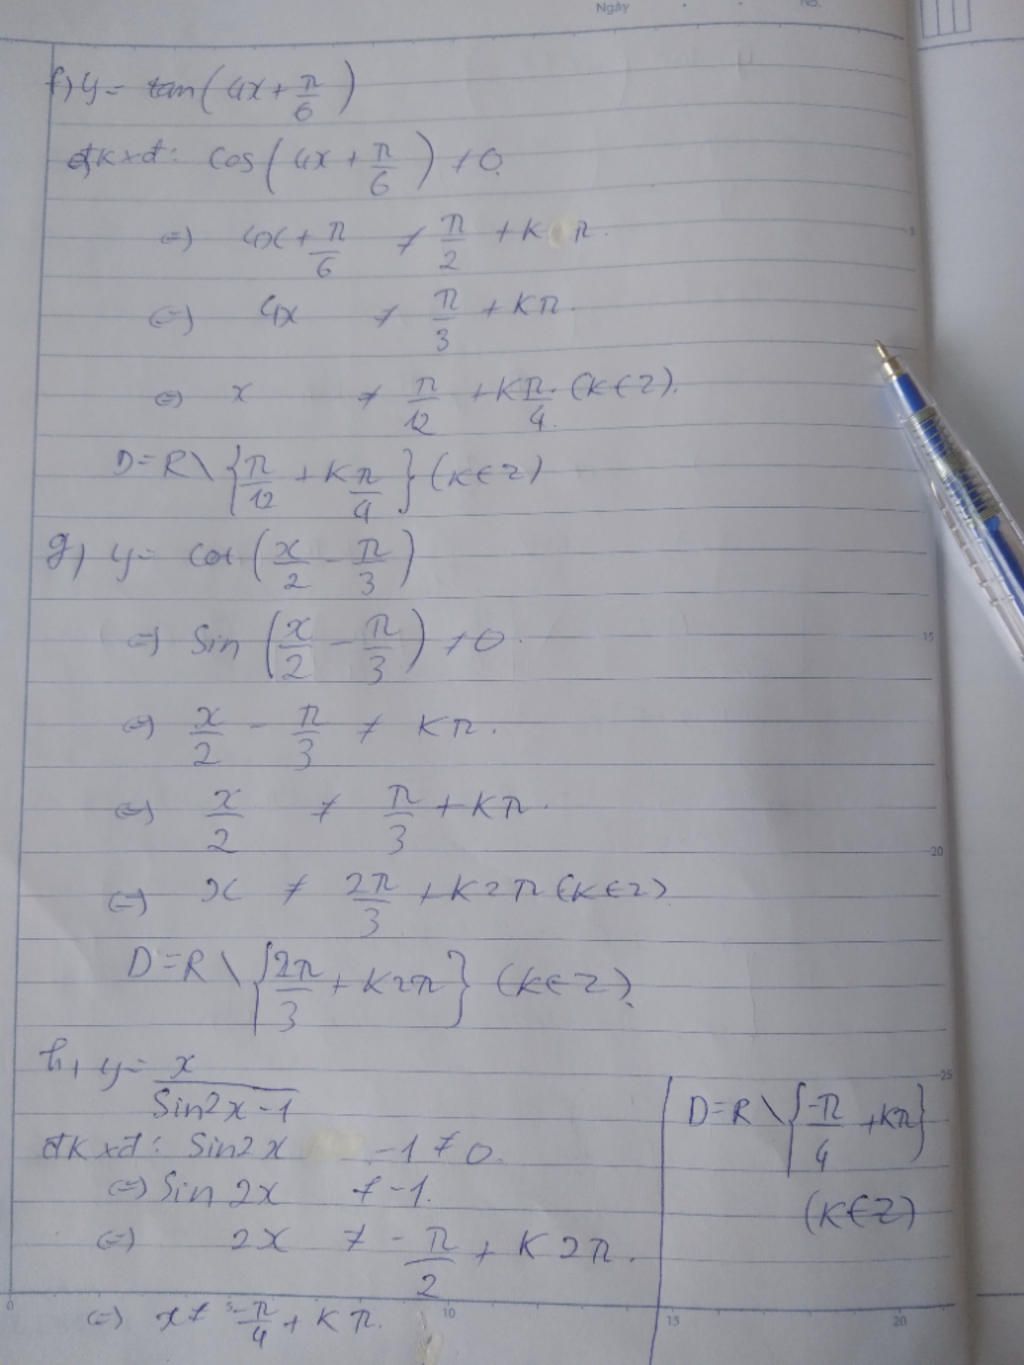 Ngày No.
f) y = tan(4x + π/6)
đkxđ: cos(4x + π/6) ≠ 0
⇔ 4x + π/6 ≠ π/2 + kπ.
⇔ 4x ≠ π/3 + kπ.
⇔ x ≠ π/12 + kπ/4. (k∈Z).
D=R\{π/12 + kπ/4} (k∈Z)
g) y = cot(x/2 - π/3)
⇔ sin(x/2 - π/3) ≠ 0.
⇔ x/2 - π/3 ≠ kπ.
⇔ x/2 ≠ π/3 + kπ.
⇔ x ≠ 2π/3 + k2π (k∈Z)
D=R\{2π/3 + k2π} (k∈Z).
h) y = x/(Sin2x-1)
đkxđ: Sin2x -1 ≠ 0.
⇔ Sin 2x ≠ -1.
⇔ 2x ≠ -π/2 + k2π.
⇔ x ≠ -π/4 + kπ.
D=R\{-π/4 + kπ}
(k∈Z)
5
15
20
25
0 5 10 15 20